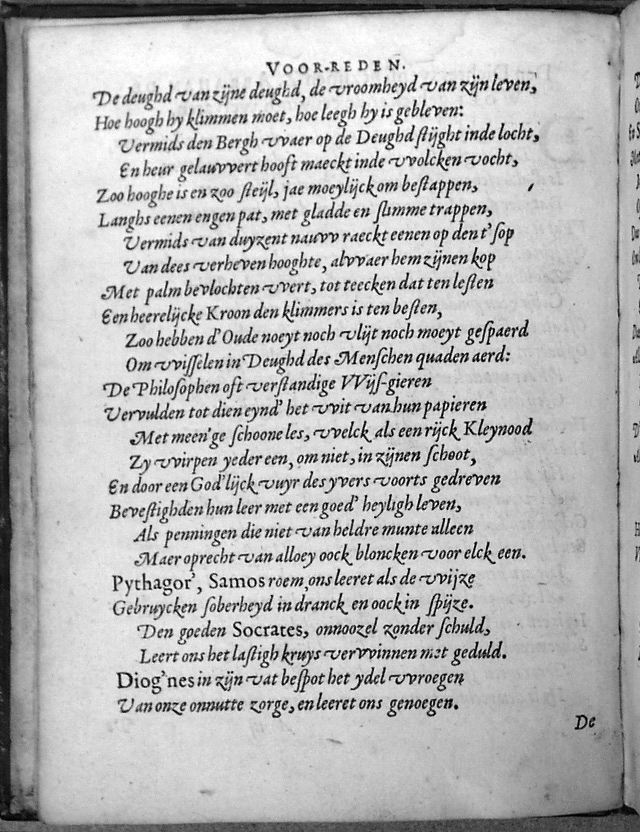 VOOR-REDEN.
De deughd van zijne deughd, de vroomheyd van zijn leven,
Hoe hoogh hy klimmen moet, hoe leegh hy is gebleven:
Vermids den Bergh vvaer op de Deughd stijght inde locht,
En heur gelauvvert hooft maeckt inde vvolcken vocht,
Zoo hooghe is en zoo steijl, jae moeylijck om bestappen,
Langhs eenen engen pat, met gladde en slimme trappen,
Vermids van duyzent nauvv raeckt eenen op den t'sop
Van dees verheven hooghte, alvvaer hem zijnen kop
Met palm bevlochten vvert, tot teecken dat ten lesten
Een heerelijcke Kroon den klimmers is ten besten,
Zoo hebben d'Oude noeyt noch vlijt noch moeyt gespaerd
Om vvisselen in Deughd des Menschen quaden aerd:
De Philosophen oft verstandige VVijs-gieren
Vervulden tot dien eynd' het vvit van hun papieren
Met meen'ge schoone les, vvelck als een rijck Kleynood
Zy vvirpen yeder een, om niet, in zijnen schoot,
En door een God'lijck vuyr des yvers voorts gedreven
Bevestighden hun leer met een goed' heyligh leven,
Als penningen die niet van heldre munte alleen
Maer oprecht van alloey oock bloncken voor elck een.
Pythagor', Samos roem, ons leeret als de vvijze
Gebruycken soberheyd in dranck en oock in spijze.
Den goeden Socrates, onnoozel zonder schuld,
Leert ons het lastigh kruys vervvinnen met geduld.
Diog'nes in zijn vat bespot het ydel vvroegen
Van onze onnutte zorge, en leeret ons genoegen.
De